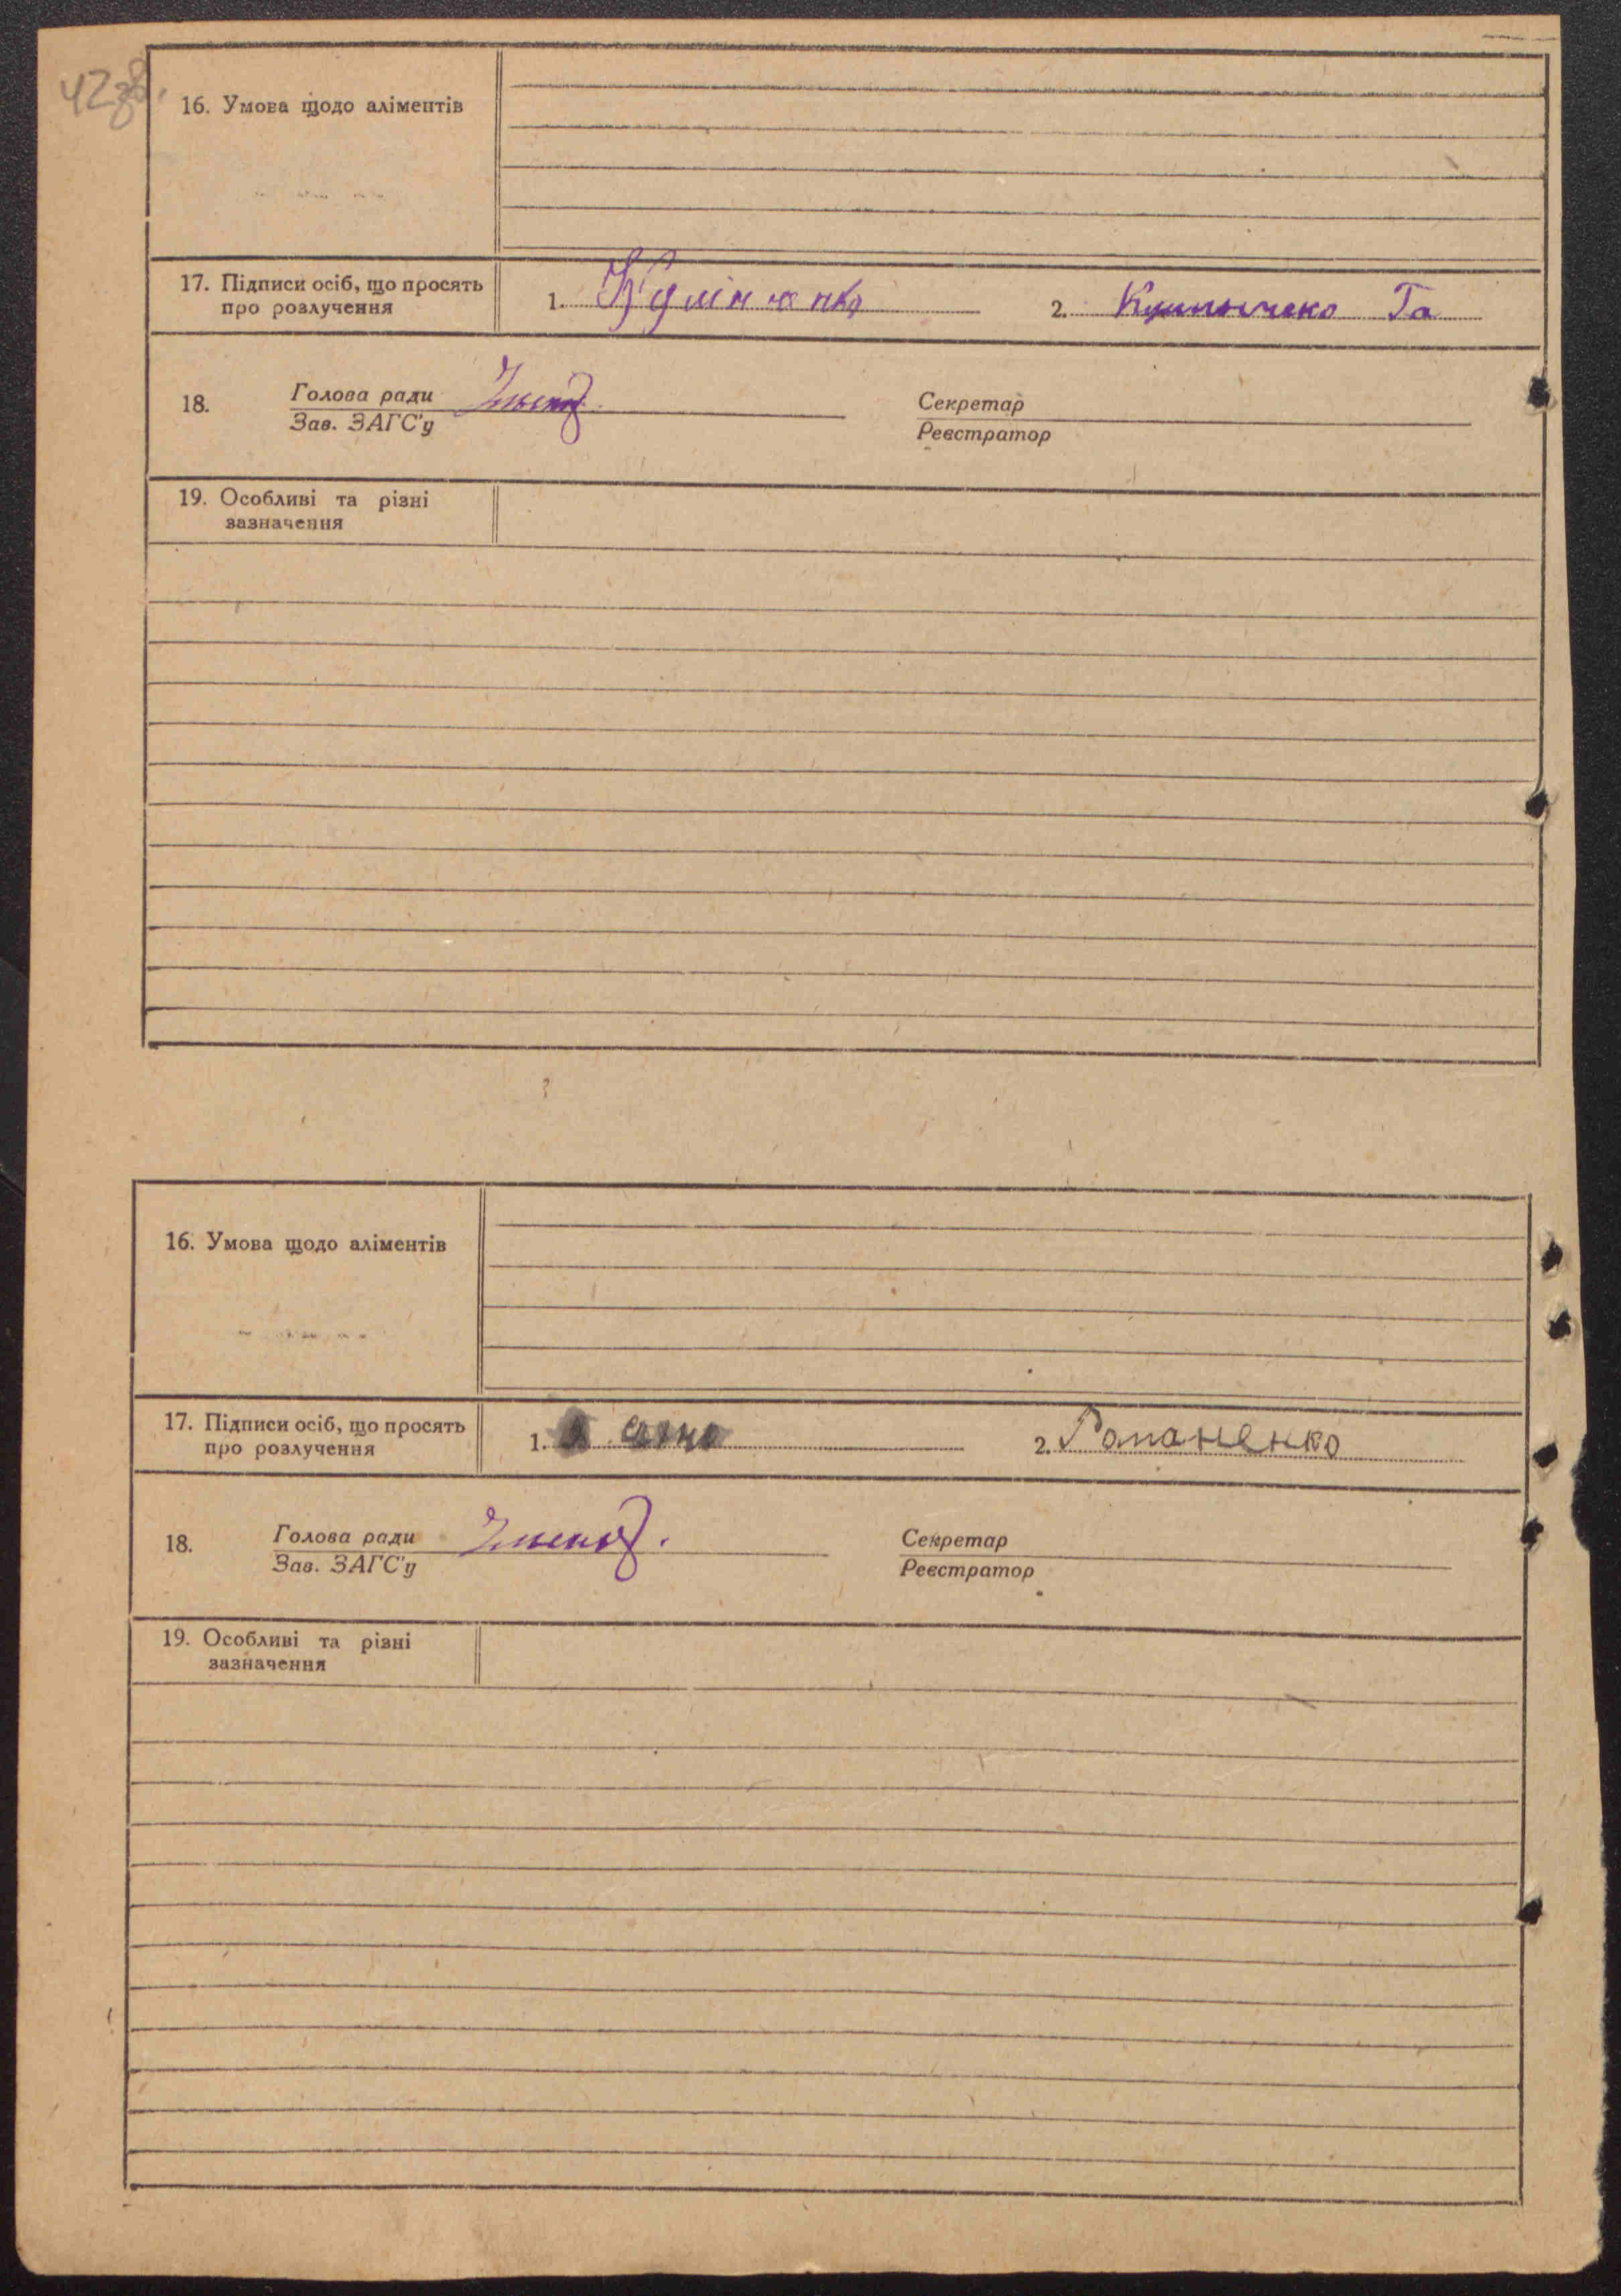 42зв.
16. Умова щодо аліментів
17. Підписи осіб, що просять
про розлучення
1. Кулінченко
2. Та
18.
Голова ради
Зав. ЗАГС'у
Секретар
Реєстратор
19. Особливі та різні
зазначення
16. Умова щодо аліментів
17. Підписи осіб, що просять
про розлучення
1.
2. Потаненко
18.
Голова ради
Зав. ЗАГС'у
Секретар
Реєстратор
19. Особливі та різні
зазначення